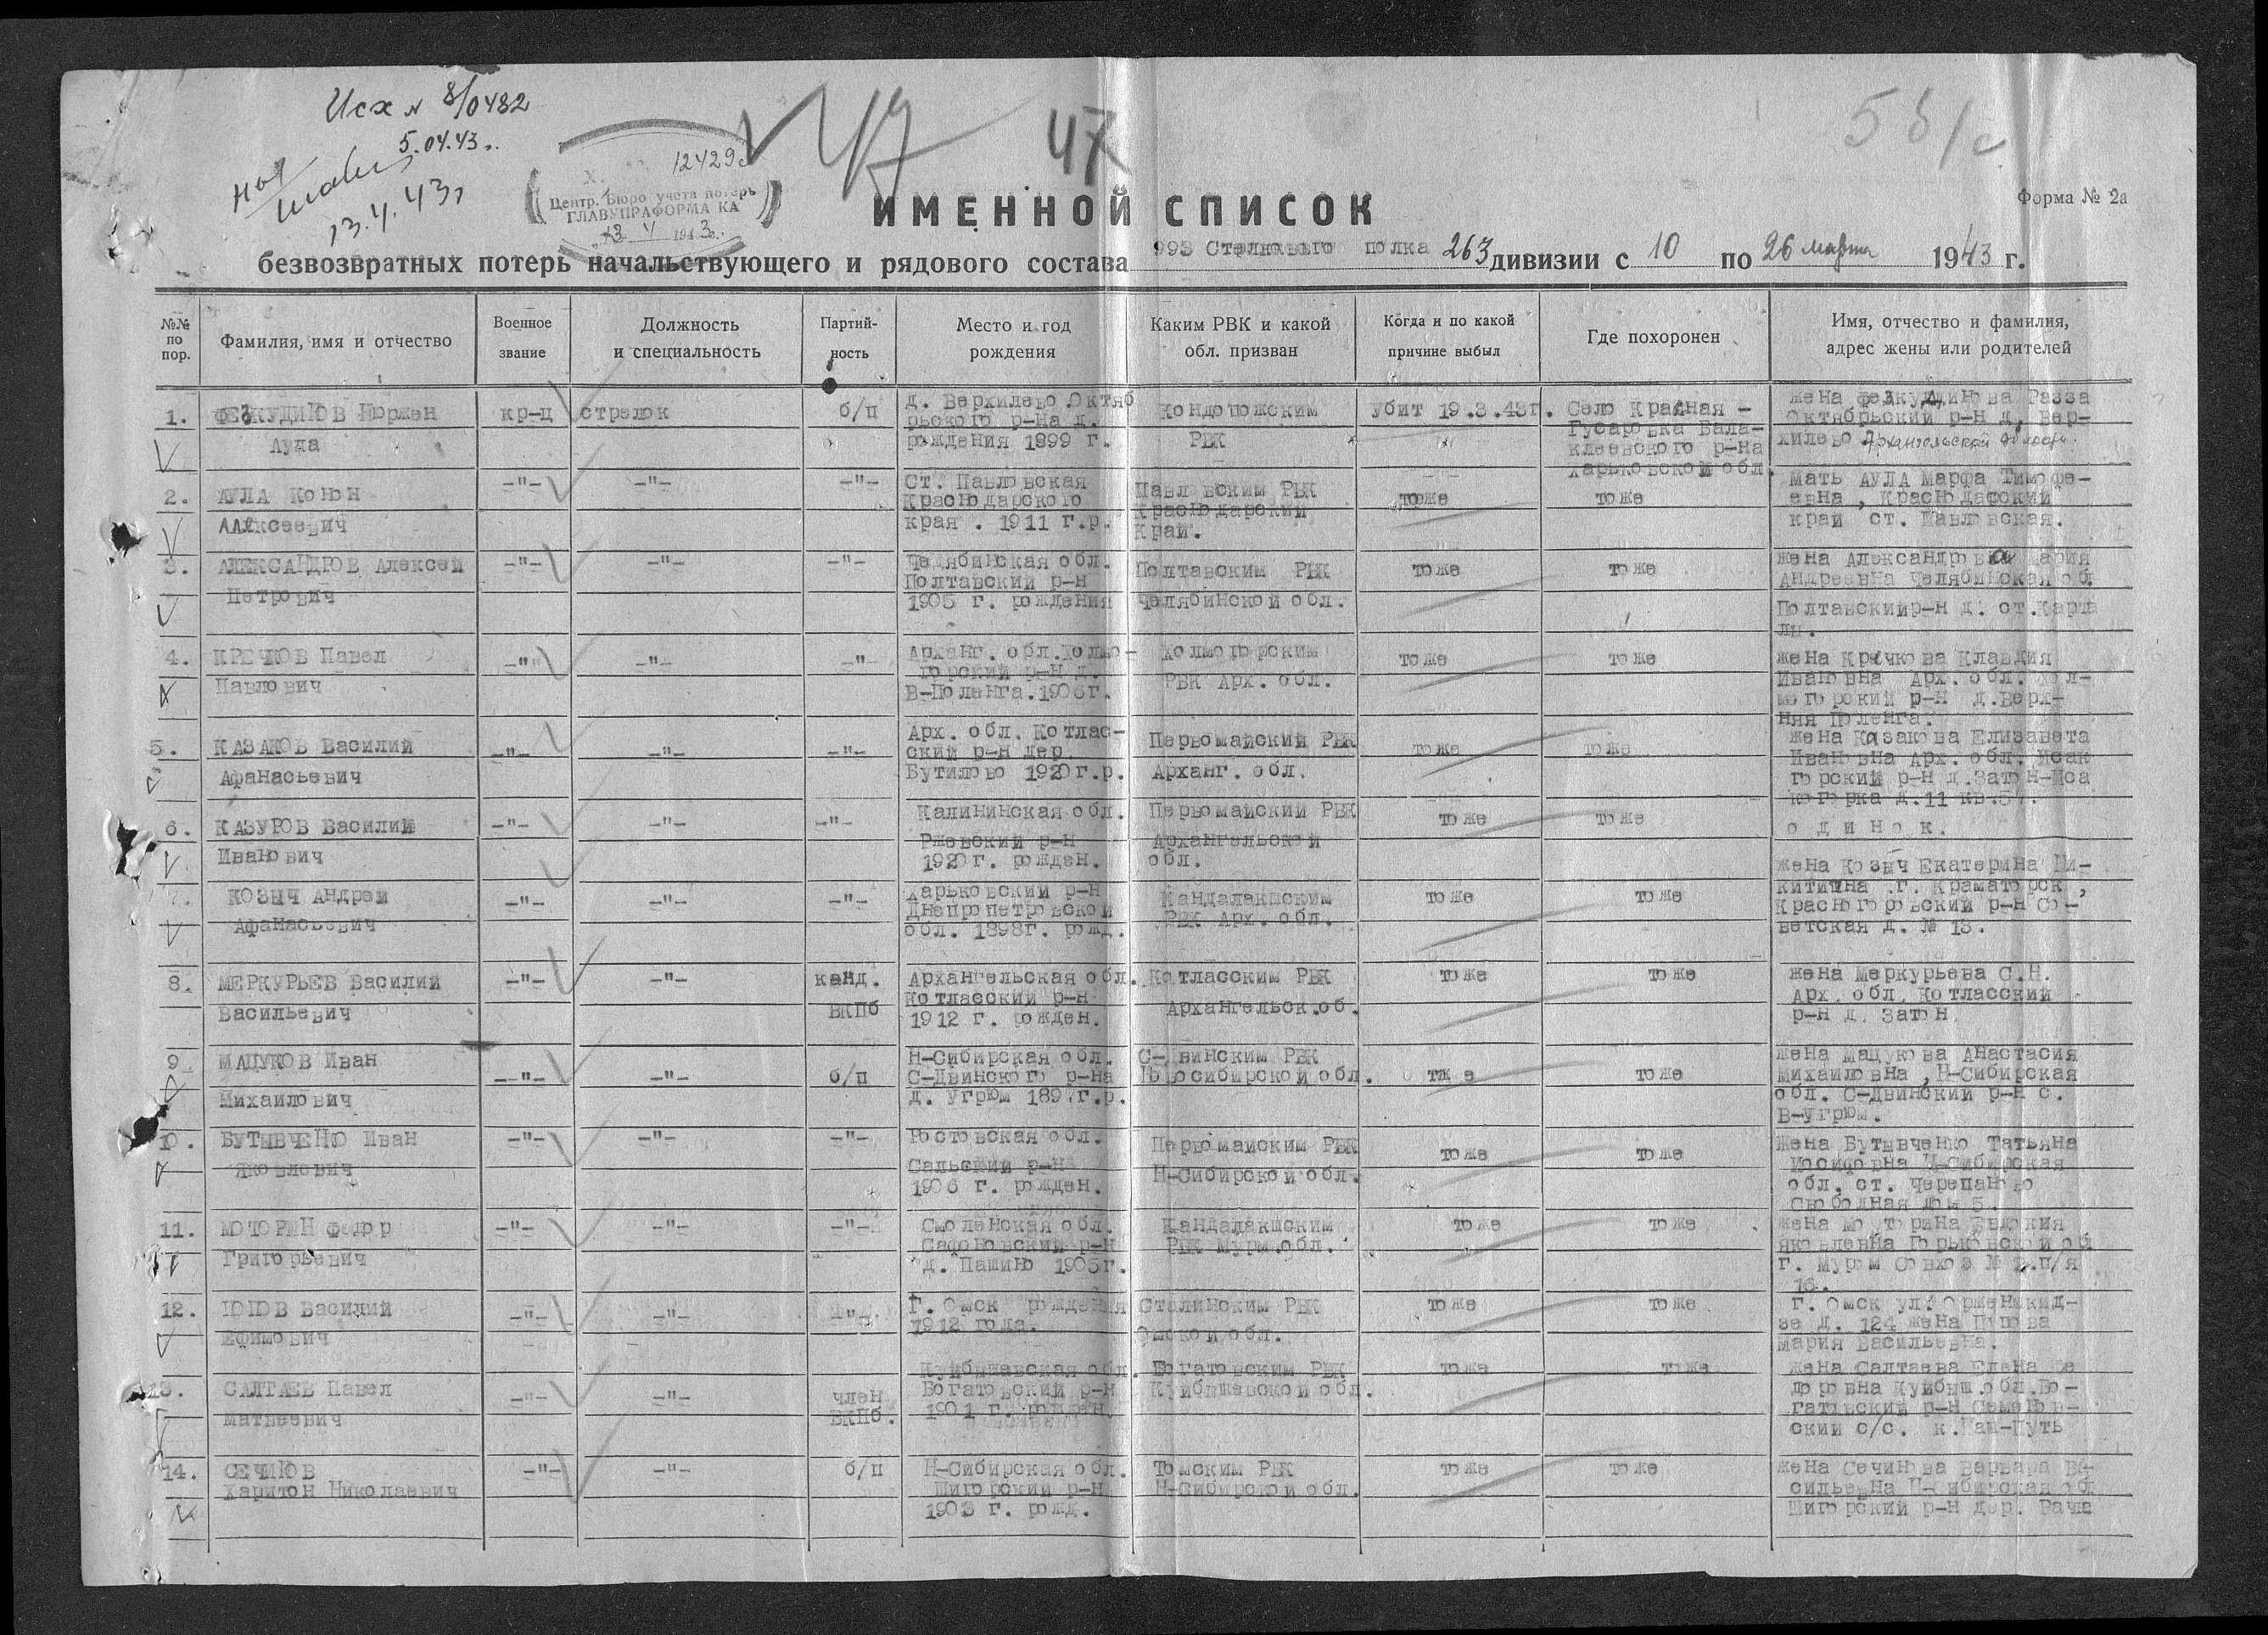 Исх № 8/0482
5.04.43г.
13.4.43г
12429с
Центр. Бюро учета потерь
ГЛАВУПРАФОРМА КА
13 4 1943г.
47
47
Форма № 2а
ИМЕННОЙ СПИСОК
безвозвратных потерь начальствующего и рядового состава 993 Стелкового полка 263 дивизии с 10 по 26 марта 1943 г.
№№ по пор.
Фамилия, имя и отчество
Военное звание
Должность и специальность
Партийность
Место и год рождения
Каким РВК и какой обл. призван
Когда и по какой причине выбыл
Где похоронен
Имя, отчество и фамилия, адрес жены или родителей
1. кр-ц стрелок б/п
д. Верхилево Октяб
рьского р-на д.
рождения 1899 г.
Кондопожским
РВК
убит 19.3.43г.
Село Красная -
Гусаровка Бала-
клеевского р-на
Харьковской обл.
Октябрьский р-н д. Вер-
хилево Архангельской области.
2. АУЛА Конон
Алексеевич
-"- -"- -"-
Ст. Павловская
Краснодарского
края. 1911 г.р.
Павловским РВК
Краснодарский
Край.
тоже тоже
мать АУЛА Марфа Тимофе-
евна, Краснодарский
край ст. Павловская.
3. АЛЕКСАНДРОВ Алексей
Петрович
-"- -"- -"-
Челябинская обл.
Полтавский р-н
1905 г. рождения
Полтавским РВК
Челябинской обл.
тоже тоже
жена Александрова Мария
Андреевна Челябинская об
Полтавский р-н д. ст. Карта
лы.
4. КРЕЧКОВ Павел
Павлович
-"- -"- -"-
Арханг. обл. Холмо-
горский р-н д.
В-Поленга. 1906г.
Холмогорским
РВК Арх. обл.
тоже тоже
жена Кречкова Клавдия
Ивановна Арх. обл. Хол-
могорский р-н д. Верх-
няя Поленга.
5. КАЗАКОВ Василий
Афанасьевич
-"- -"- -"-
Арх. обл. Котлас-
ский р-н дер.
Бутилово 1920г.р.
Первомайский РВК
Арханг. обл.
тоже тоже
жена Казакова Елизавета
Ивановна Арх. обл. Исак
горский р-н д. Затон-Иса
когорка д.11
6. КАЗУРОВ Василий
Иванович
-"- -"- -"-
Калининская обл.
Ржевский р-н
1920г. рожден.
Первомайский РВК
Архангельской
обл.
тоже тоже
одинок.
7. КОЗЫЧ Андрей
Афанасьевич
-"- -"- -"-
Харьковский р-н
Днепропетровской
обл. 1898г. рожд.
Кандалакшским
РВК Арх. обл.
тоже тоже
жена Козыч Екатерина Ни-
китишна г. Краматорск,
Красногоровский р-н Со-
ветская д. № 13.
8. МЕРКУРЬЕВ Василий
Васильевич
-"- -"- канд.
ВКПб
Архангельская обл.
Котласский р-н
1912 г. рожден.
Котласским РВК
Архангельск.об.
тоже тоже
жена Меркурьева С.Н.
Арх. обл. Котласский
р-н д. Затон.
9. МАЦУКОВ Иван
Михайлович
-"- -"- б/п
Н-Сибирская обл.
С-Двинского р-на
д. Угрюм
С-Двинским РВК
Новосибирской обл.
тоже тоже
жена Мацукова Анастасия
Михайловна, Н-Сибирская
обл. С-Двинский р-н с.
В-Угрюм.
10. БУТЫВЧЕНКО Иван
Яковлевич
-"- -"- -"-
Ростовская обл.
Сальский р-н
1906 г. рожден.
Первомайским РВК
Н-Сибирской обл.
тоже тоже
Жена Бутывченко Татьяна
Иосифовна Н-Сибирская
обл. ст. Черепаново
Свободная дом 5.
11. МОТОРИН Федор
Григорьевич
-"- -"- -"-
Смоленская обл.
Сафоновский р-н
д. Пашино 1905г.
Кандалакшским
РВК Мурм.обл.
тоже тоже
жена Моторина Евдокия
Яковлевна Горьковской об
г. Муром Совхоз п/я
16.
12. ПОПОВ Василий
Ефимович
-"- -"- -"-
Г. Омск рождения
1912 года.
Сталинским РВК
Омской обл.
тоже тоже
г. Омск ул. Орженикид-
зе д. 124 жена Попова
Мария Васильевна.
13. САЛТАЕВ Павел
Матвеевич
-"- -"- член
ВКПб.
Куйбышевская обл.
Богатовский р-н
1901 г. рожден
Богатовским РВК
Куйбышевской обл.
тоже тоже
жена Салтаева Елена Фе
доровна Куйбыш.обл. Бо-
гатовский р-н Семенов-
ский с/с. к. Наш-Путь
14. СЕЧИНОВ
Харитон Николаевич
-"- -"- б/п
Н-Сибирская обл.
Шигорский р-н
1903 г. рожд.
Томским РВК
Н-Сибирской обл.
тоже тоже
жена Сечинова Варвара Ва-
сильевна Н-Сибирская об
Шигорский р-н дер. Вача